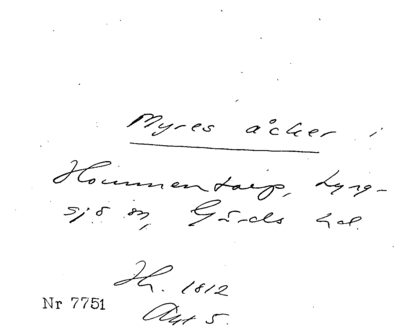 Myres åcker i
Hommentorp, Lyng-
sjö sn, Gärds hd.
Ih. 1812
Akt 5.
Nr 7751